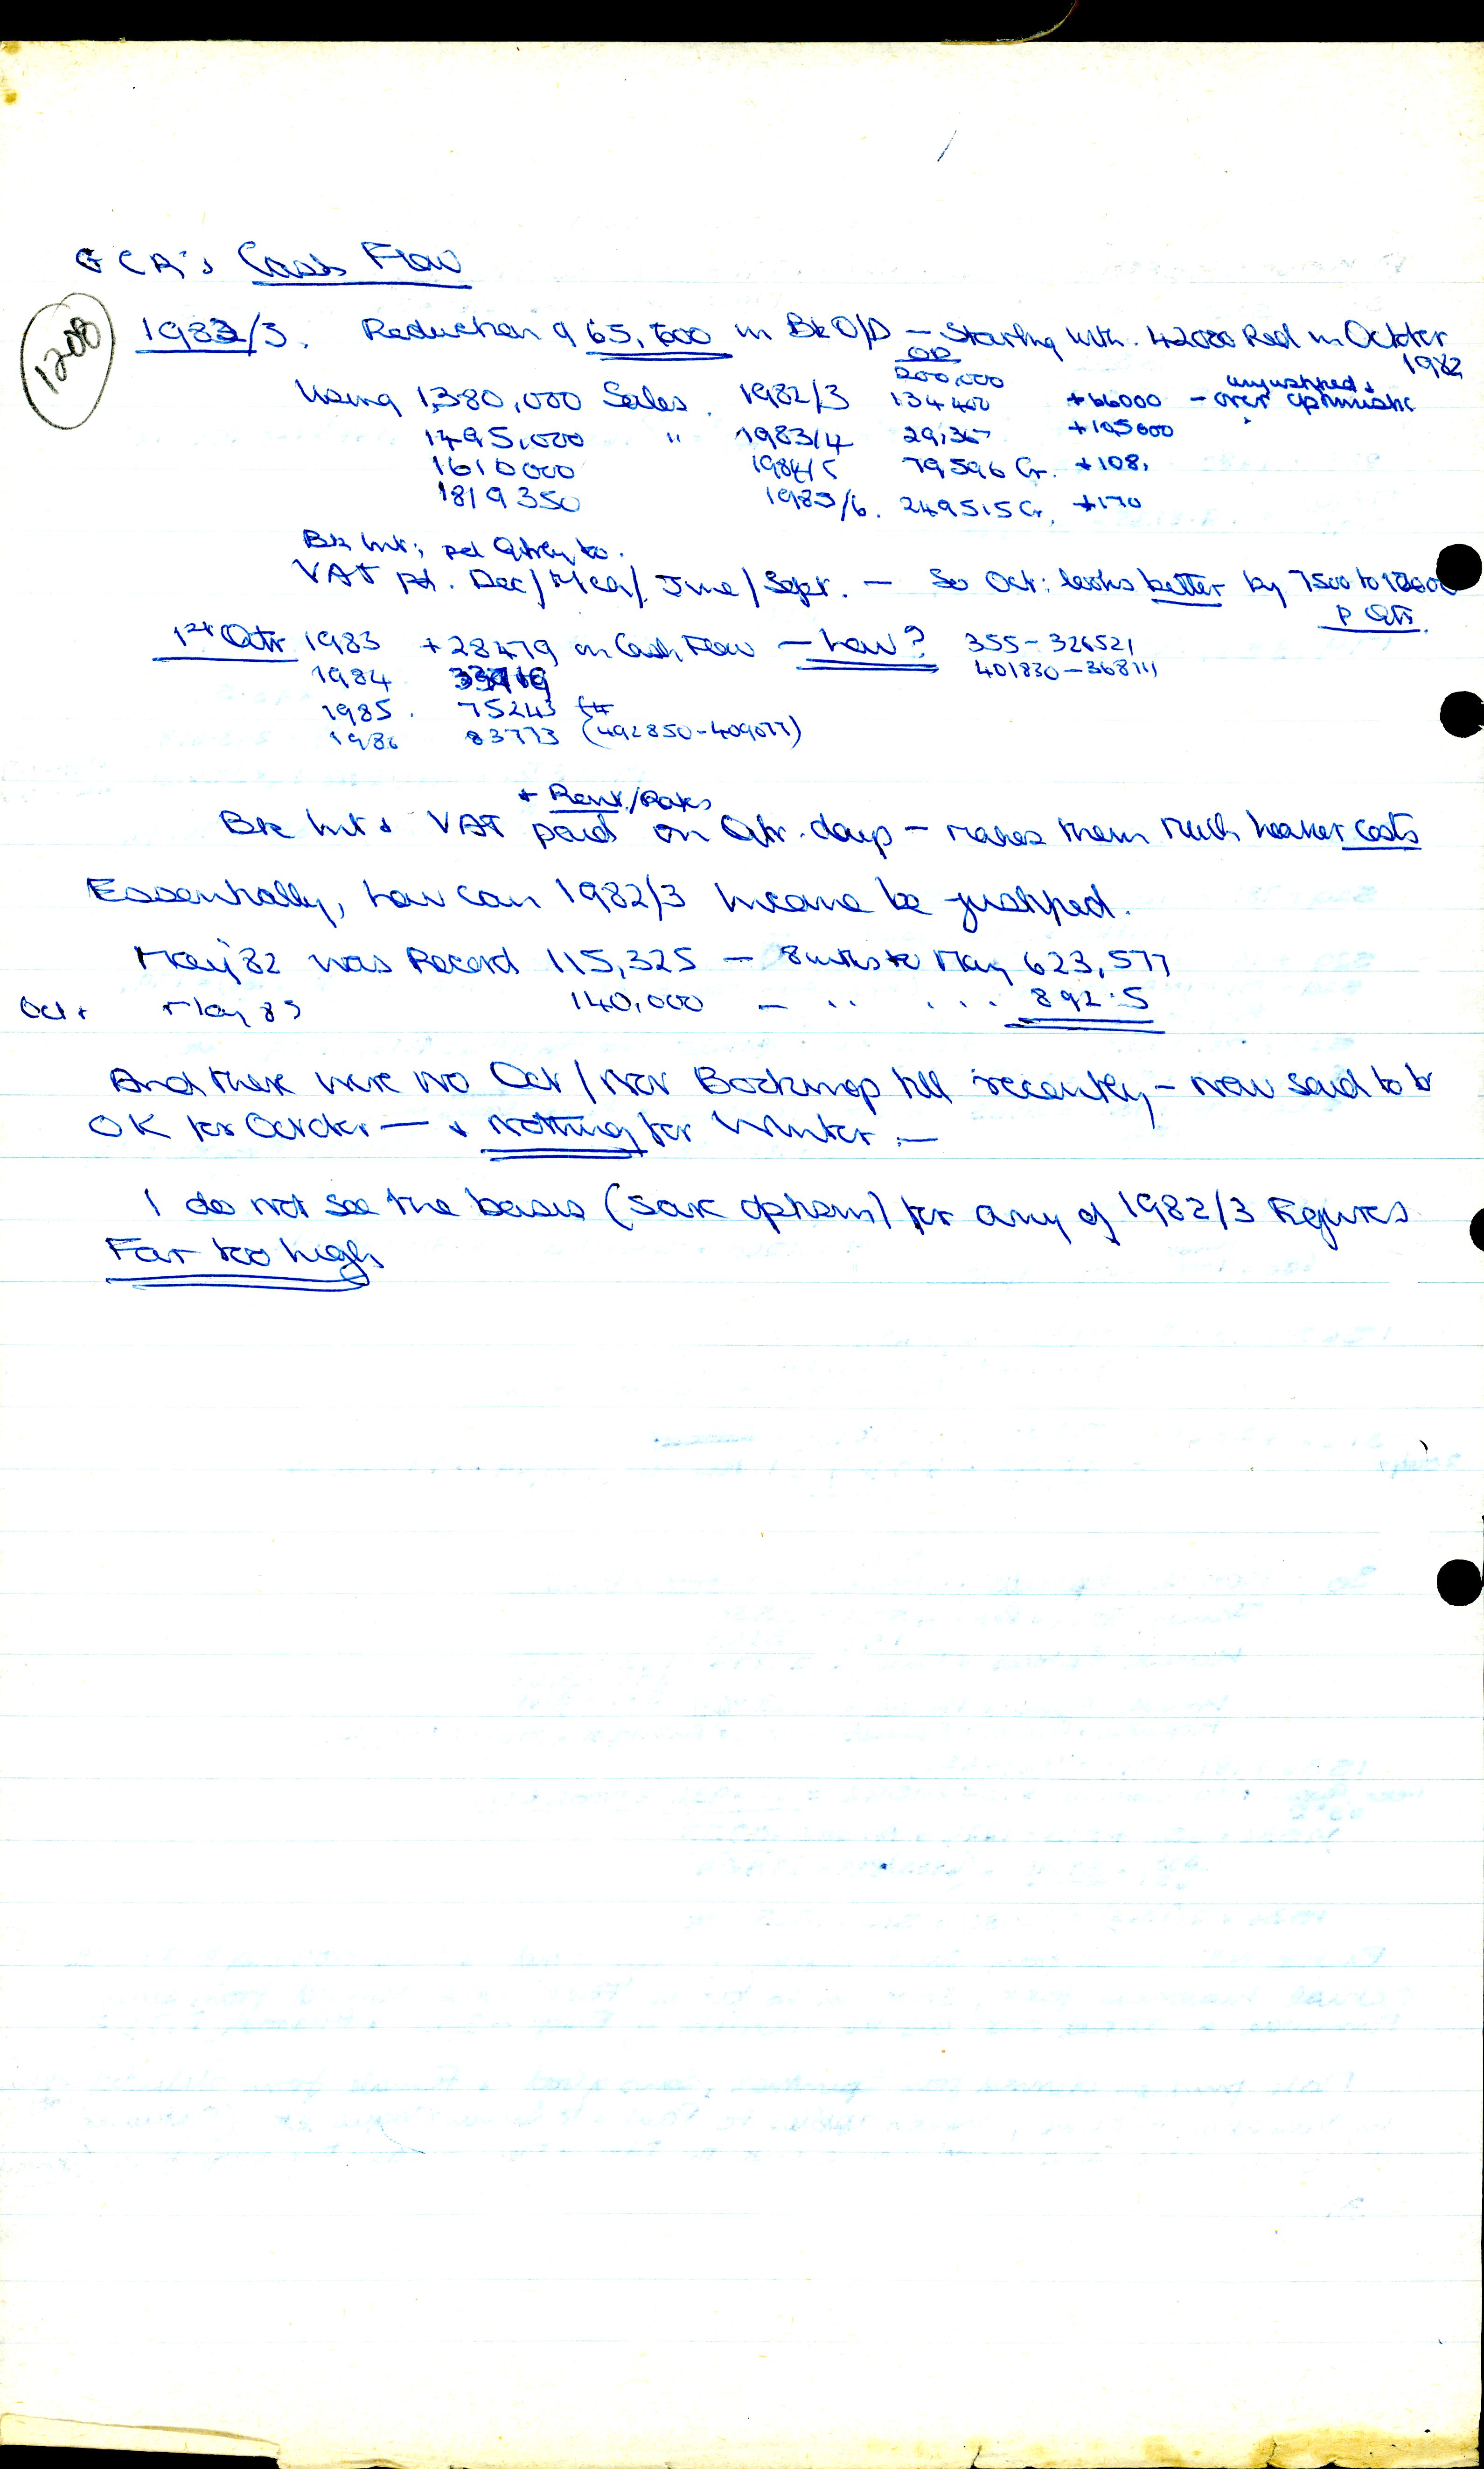 GCR's Cash Flow
1200
1982/3. Reduction of 65,600 in Bk O/D — Starting with 42000 Red in October
1982
OD
200,000
unjustified &
Using 1,380,000 Sales. 1982/3 134400 +66000 - over optimistic
1495,000 " 1983/4 29,367 +105000
1610000 1984/5 79596 Cr. +108,
1819350 1985/6. 249515 Cr, +170
Bk Int; pd Qtrly to.
VAT pd. Dec/Mar/June/Sept. — So Oct: looks better by 7500 to
p Qtr.
1st Qtr 1983 +28479 on Cash Flow — how? 355-326521
1984 401830-368111
1985. 75243
1986 83773 (492850-409077)
+ Rent/Rates
Bk Int & VAT paid on Qtr. days - makes them much heavier costs
Essentially, how can 1982/3 Income be justified.
May '82 was Record 115,325 — 8 mths to May 623,577
Oct May 83 140,000 — " " 892.5
And there were no Oct/Nov Bookings till recently - now said to be
OK for October — & nothing for Winter. —
I do not see the basis (save optimism) for any of 1982/3 Figures
Far too high